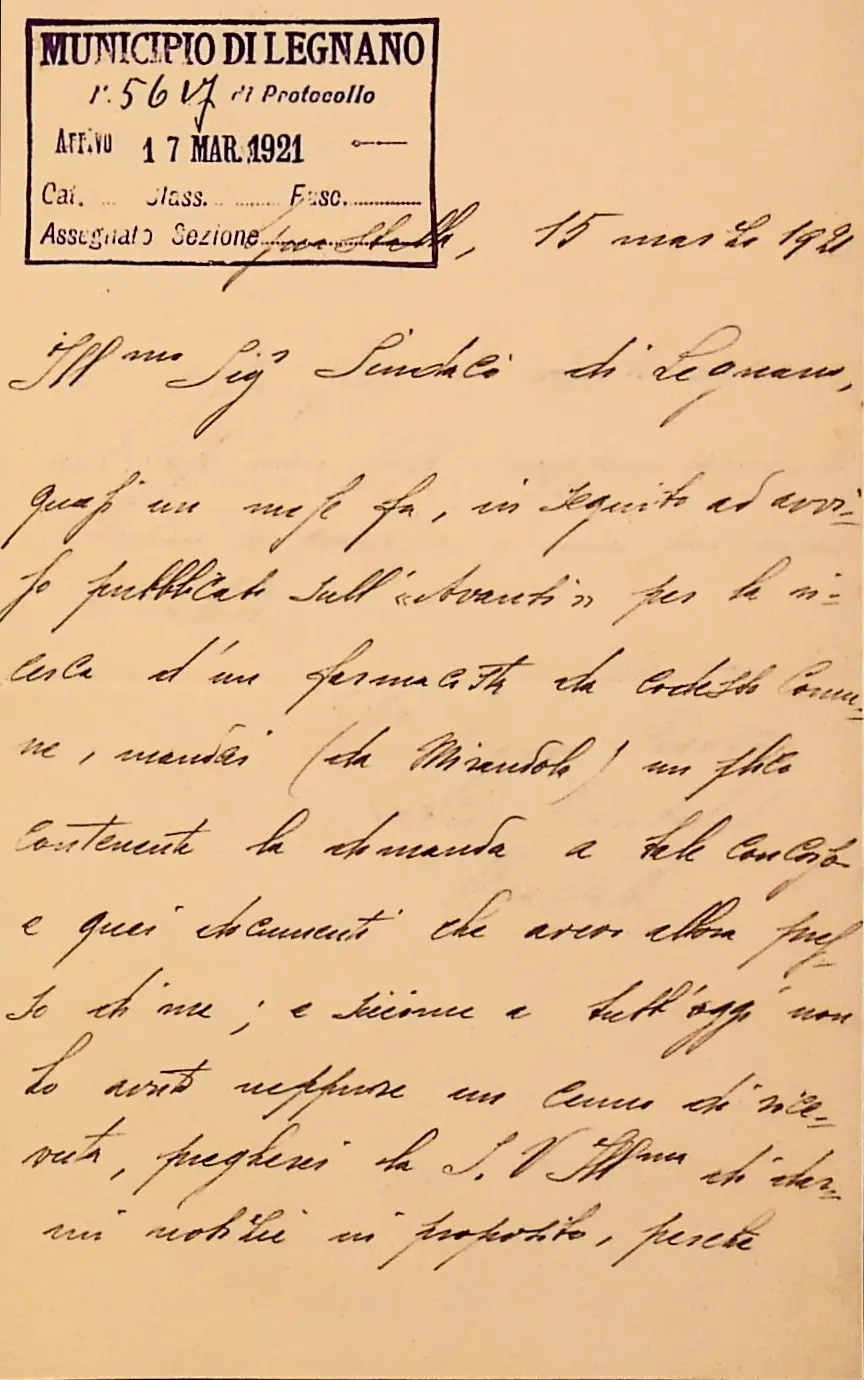 MUNICIPIO DI LEGNANO
N. 5617 di Protocollo
Arrivo 17 MAR. 1921
Cat. Class. Fasc.
Assegnato Sezione
15 marzo 1921
Ill.mo Sig.r Sindaco di Legnano,
quasi un mese fa, in seguito ad avvi=
so pubblicato sull'«Avanti» per la ri=
cerca d'un farmacista da codesto Comu=
ne, mandai (da Mirandola) un plico
contenente la domanda a tale concorso
e quei documenti che avevo allora pres=
so di me; e siccome a tutt'oggi non
ho avuto neppure un cenno di rice=
vuta, pregherei la S. V Ill.ma di dar=
mi notizie in proposito, perchè